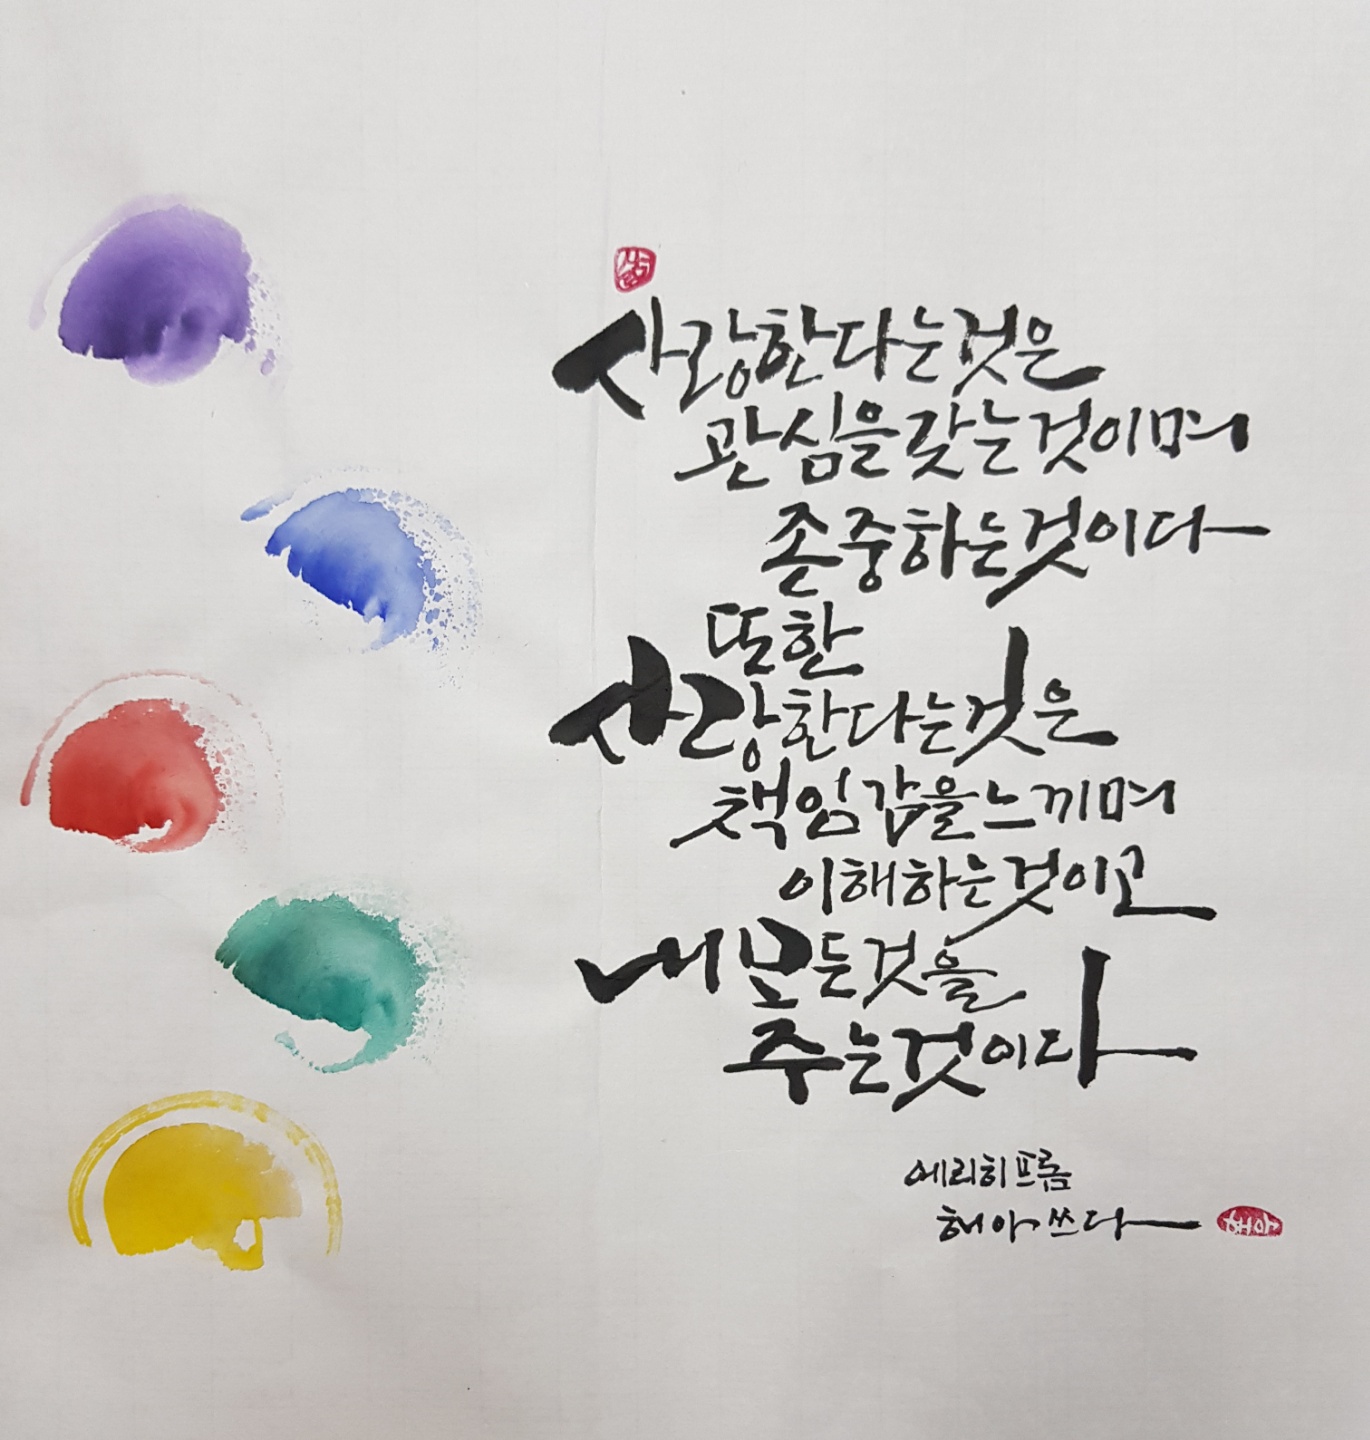 사랑한다는것은
관심을갖는것이며
존중하는것이다
또한
사랑한다는것은
책임감을느끼며
이해하는것이고
내모든것을
주는것이다
에리히프롬
해아쓰다